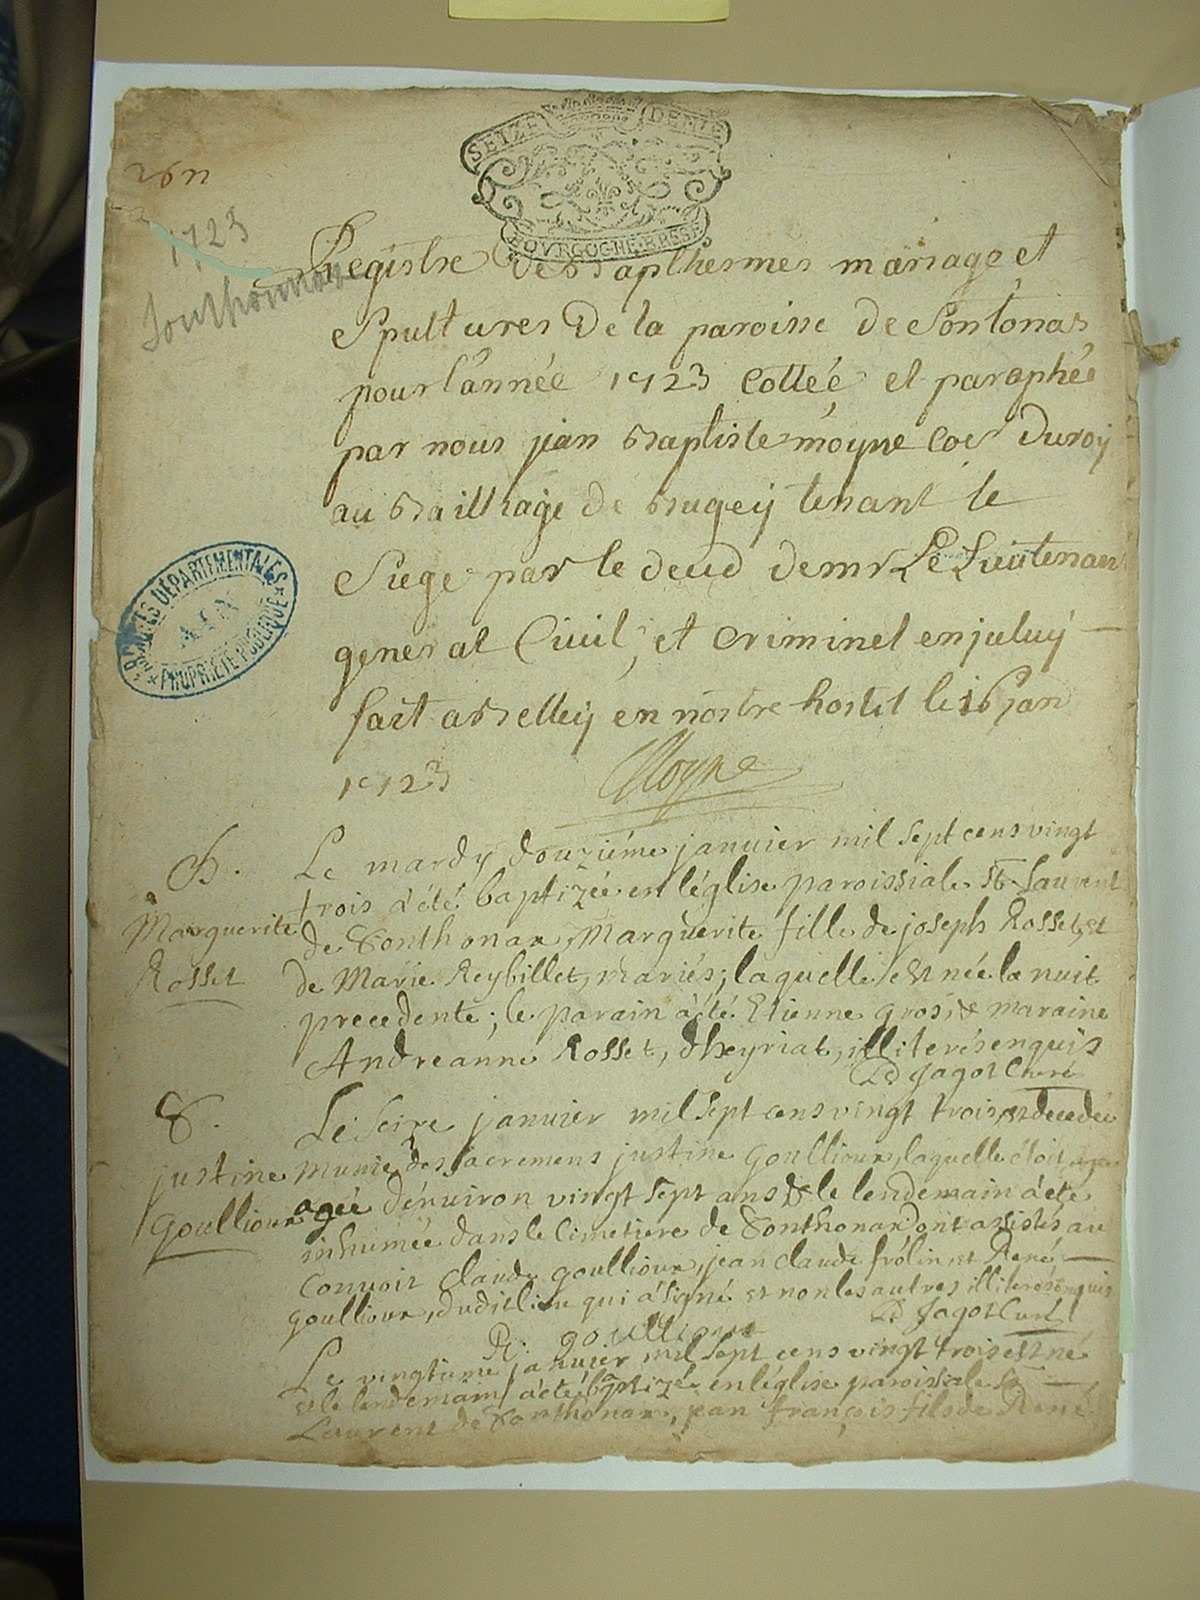 SEIZE DENIE
BOURGOGNE BRESSE
26n
1723
Southonnax
Registre de Bapthesmes mariage et
Spultures De la paroisse de Sontonas
pour l'année 1723 Cottéé et paraphée
par nous jean Baptiste moyne Coer Du roy
au Bailliage de Bugey tenant le
Siege par le deced de mr Le Lieutenant
general Civil, et Criminel en iceluy
fait a Belley en nostre hostel le 16 Jan
1723
Moyne
ARCHIVES DÉPARTEMENTALES
AIN
PROPRIÉTÉ PUBLIQUE
B.
Marguerite
Rosset
Le mardy douziéme janvier mil sept cens vingt
trois a été baptizée en l'église paroissiale St Laurent
de Sonthonax, Marguerite fille de joseph Rosset, et
de Marie Reybillet, mariés; laquelle est née la nuit
precedente; le parain a été Etienne gros; & maraine
Andréanne Rosset, d'heyriat, illiterés enquis
Jagot Curé
S.
justine
goullioux
Le seize janvier mil sept cens vingt trois, est decedée
munie des sacremens justine goullioux, laquelle étoit
agée d'environ vingt sept ans & le lendemain a été
inhumée dans le cimetiere de Sonthonax dont assistés au
Convoir Claude goullioux, jean claude frôlin et René
goullioux, dudit lieu qui a signé et non les autres illiterés enquis
R. goullioux
Jagot Curé
Le vingtieme janvier mil sept cens vingt trois est né
et le lendemain a été baptizé en l'église paroissiale St
Laurent de Sonthonax, jean françois fils de René